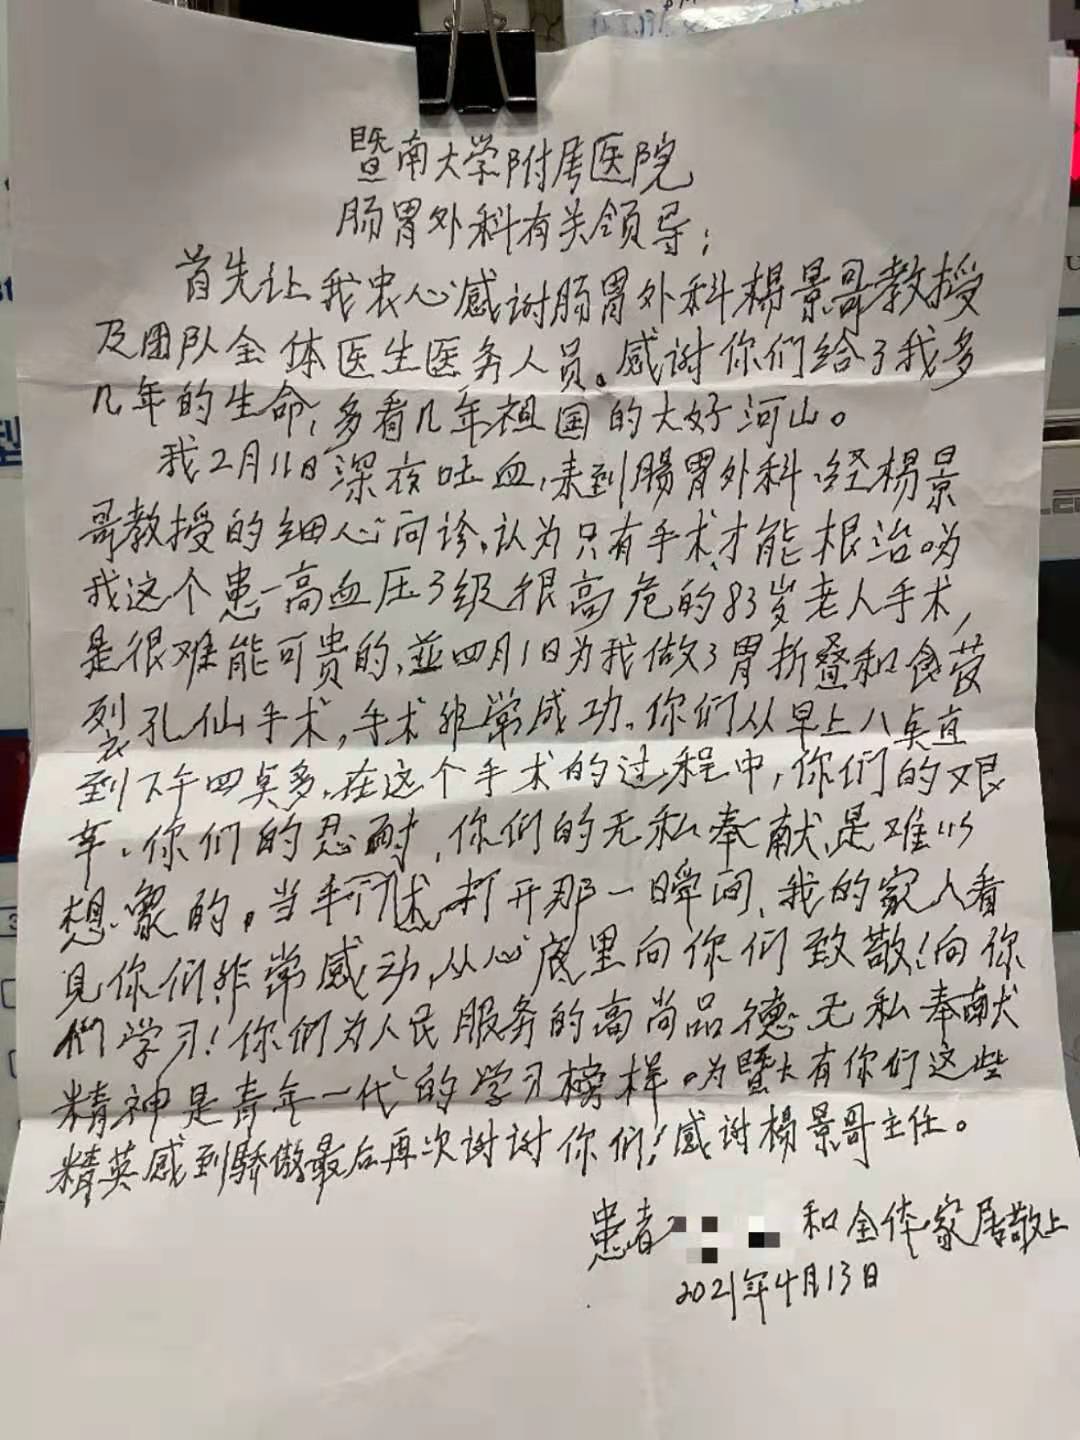 暨南大学附属医院
肠胃外科有关领导：
首先让我衷心感谢肠胃外科杨景哥教授
及团队全体医生医务人员。感谢你们给了我多
几年的生命，多看几年祖国的大好河山。
我2月11日深夜吐血，来到肠胃外科，经杨景
哥教授的细心问诊，认为只有手术才能根治
我这个患高血压3级很高危的83岁老人手术，
是很难能可贵的，並四月1日为我做了胃折叠和食管
裂孔仙手术，手术非常成功。你们从早上八点直
到下午四点多，在这个手术的过程中，你们的艰
辛、你们的忍耐，你们的无私奉献，是难以
想象的。当手术打开那一瞬间，我的家人看
见你们非常感动，从心底里向你们致敬！向你
们学习！你们为人民服务的高尚品德无私奉献
精神是青年一代的学习榜样。为暨大有你们这些
精英感到骄傲最后再次谢谢你们！感谢杨景哥主任。
患者 和全体家居敬上
2021年4月13日